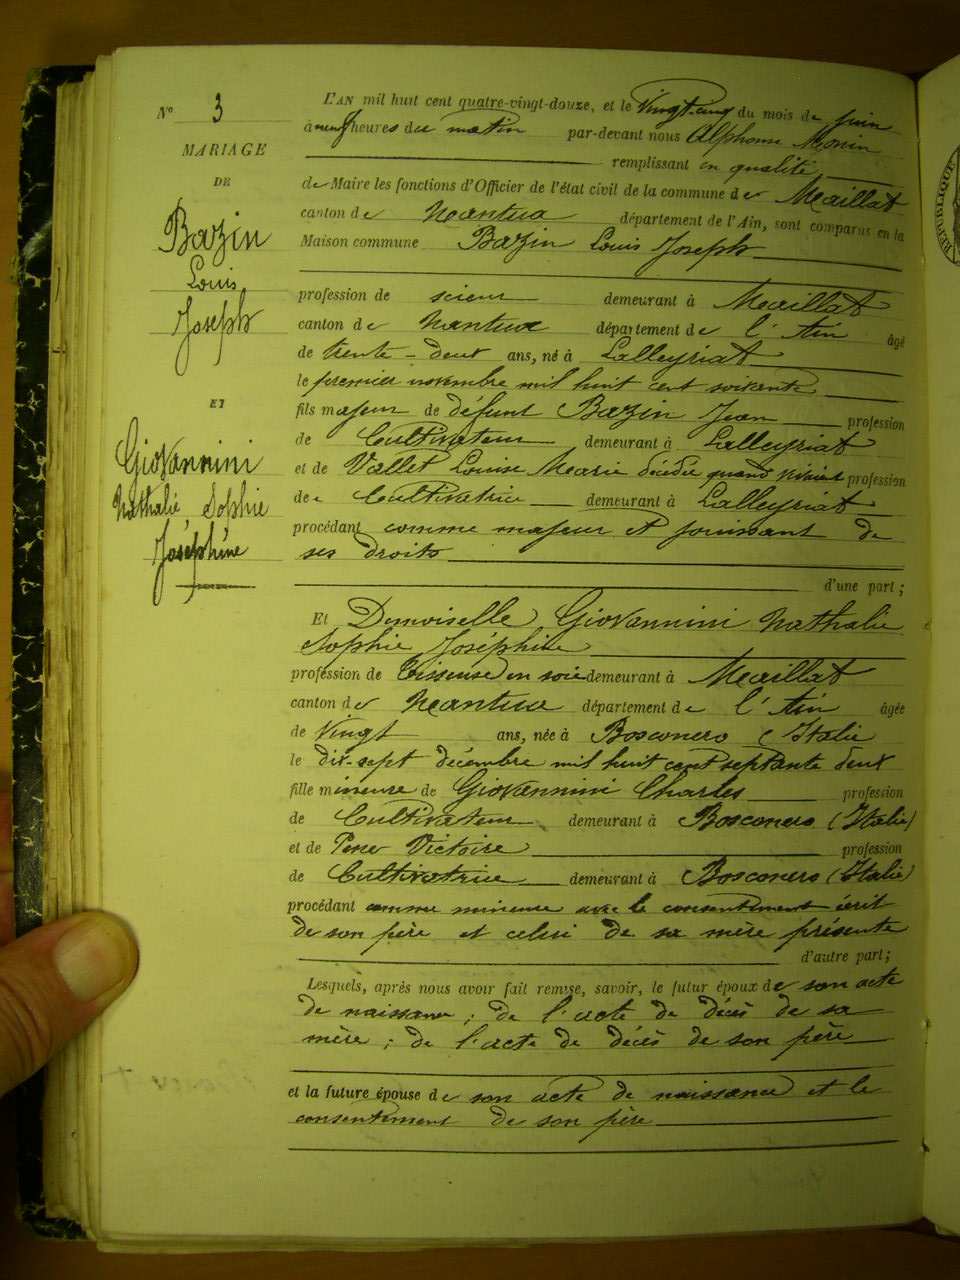 N° 3
MARIAGE
DE
Bazin
Louis
Joseph
ET
Giovannini
Nathalie Sophie
Joséphine
L'AN mil huit cent quatre-vingt-douze, et le vingt-cinq du mois de juin
à neuf heures du matin par-devant nous Alphonse Monin
remplissant en qualité
de Maire les fonctions d'Officier de l'état civil de la commune de Maillat
canton de Nantua département de l'Ain, sont comparus en la
Maison commune Bazin Louis Joseph
profession de scieur demeurant à Maillat
canton de Nantua département de l'Ain âgé
de trente-deux ans, né à Lalleyriat
le premier novembre mil huit cent soixante
fils majeur de défunt Bazin Jean profession
de Cultivateur demeurant à Lalleyriat
et de Vallet Louise Marie décédée quand vivait profession
de Cultivatrice demeurant à Lalleyriat
procédant comme majeur et jouissant de
ses droits
d'une part;
Et Demoiselle Giovannini Nathalie
Sophie Joséphine
profession de tisseuse en soie demeurant à Maillat
canton de Nantua département de l'Ain âgée
de vingt ans, née à Bosconero (Italie
le dix-sept décembre mil huit cent septante deux
fille mineure de Giovannini Charles profession
de Cultivateur demeurant à Bosconero (Italie)
et de Pene Victoire profession
de Cultivatrice demeurant à Bosconero (Italie)
procédant comme mineure avec le consentement écrit
de son père et celui de sa mère présente
d'autre part;
Lesquels, après nous avoir fait remise, savoir, le futur époux de son acte
de naissance; de l'acte de décès de sa
mère; de l'acte de décès de son père
et la future épouse de son acte de naissance et le
consentement de son père
RÉPUBLIQUE